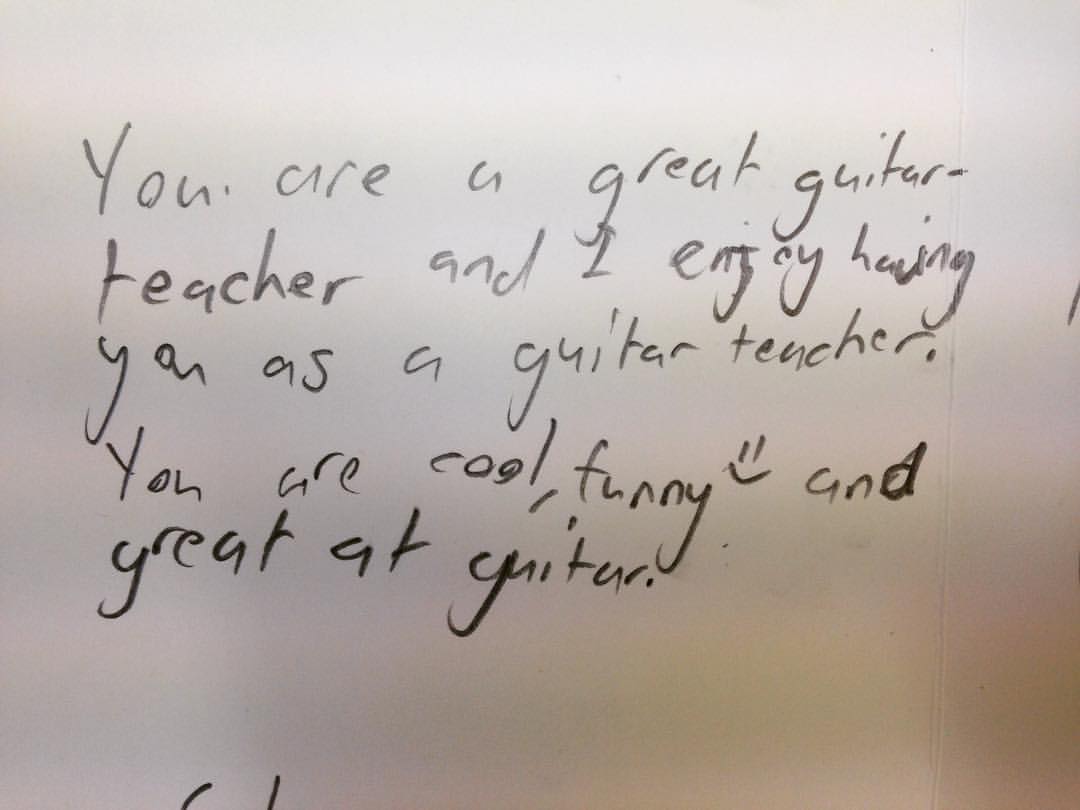 You. are a great guitar-
teacher and I enjoy having
you as a guitar teacher.
You are cool, funny and
great at guitar.